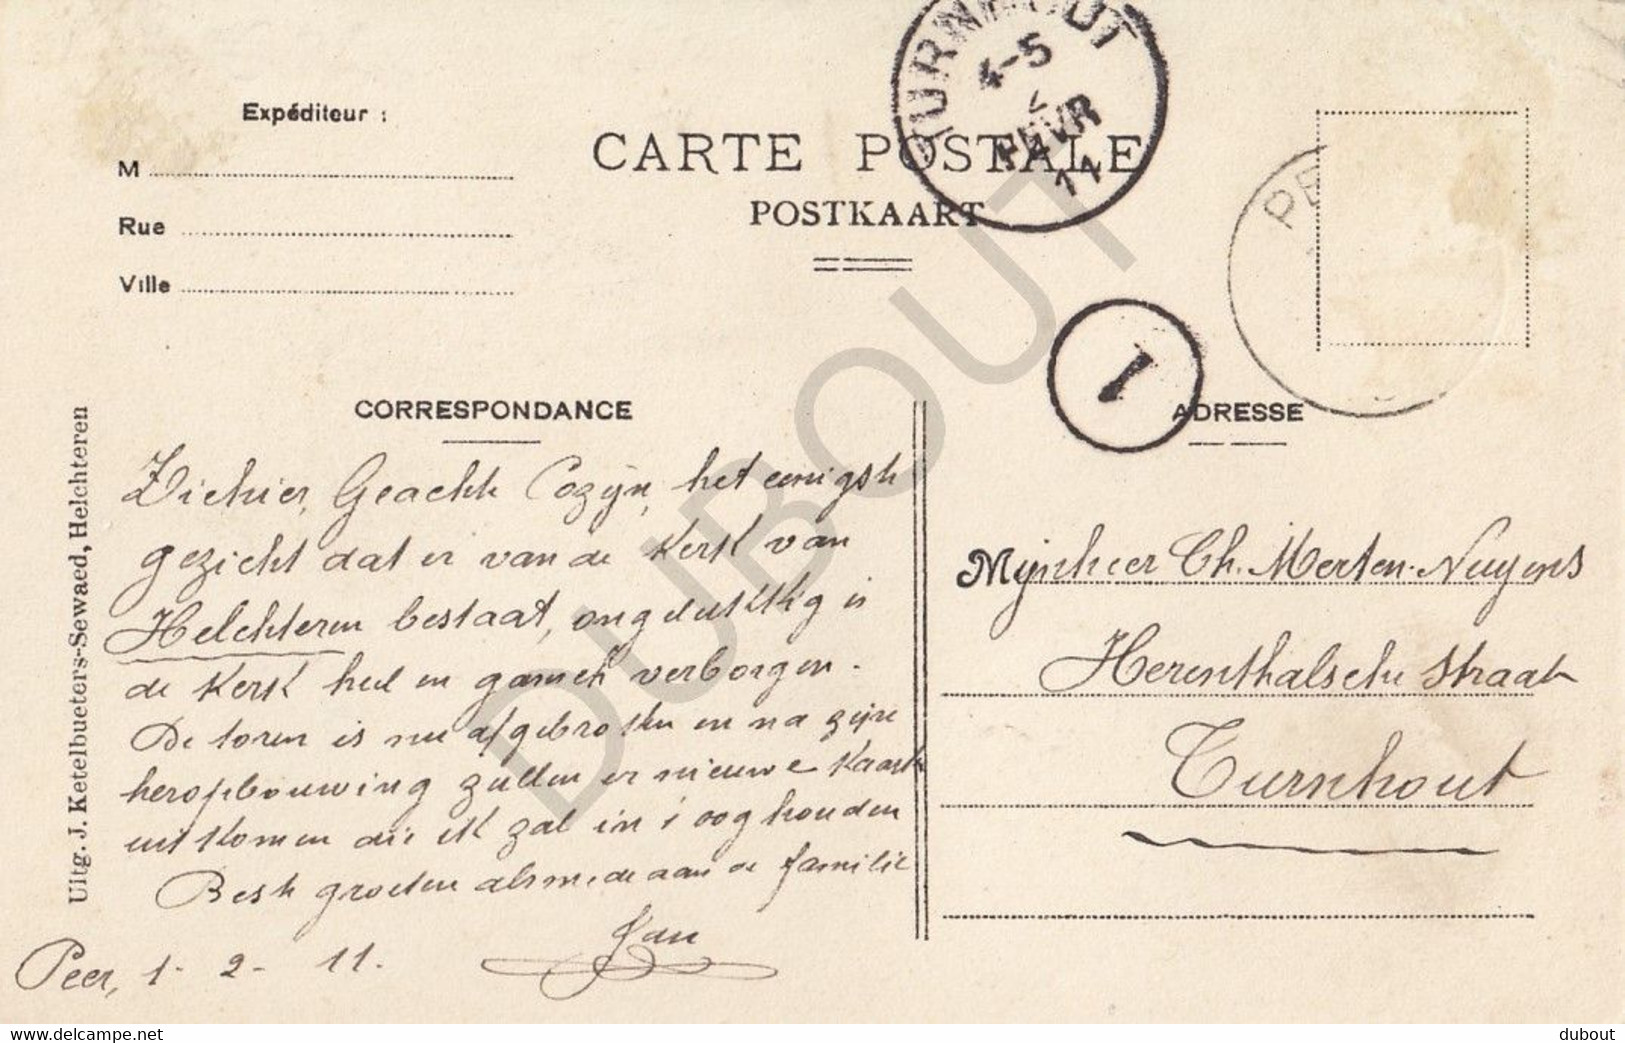 Expéditeur :
M
Rue
Ville
CARTE POSTALE
POSTKAART
TURNHOUT
4-5
2
FEVR
11
PE
1
CORRESPONDANCE
ADRESSE
Uitg. J. Ketelbueters-Sewaed, Helchteren
Ziehier, Geachte Cozijn, het eenigste
gezicht dat er van de Kerk van
Helchteren bestaat, ongelukkig is
de Kerk heel en gansch verborgen.
De toren is nu afgebroken en na zijne
heropbouwing zullen er nieuwe Kaarte
uitkomen die ik zal in 't oog houden
Beste groeten alsmede aan de familie
Jan
Peer, 1- 2- 11.
Mijnheer Ch. Merten-Nuyens
Herenthalsche straat
Turnhout
DUBOUT
https://www.delcampe.net
dubout